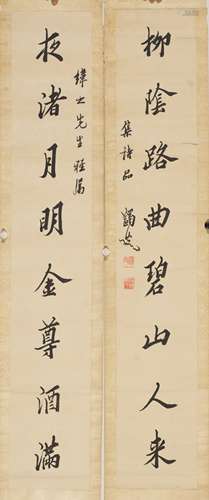 柳陰路曲碧山人来
集詩品
夜渚月明金尊酒滿
先生雅屬